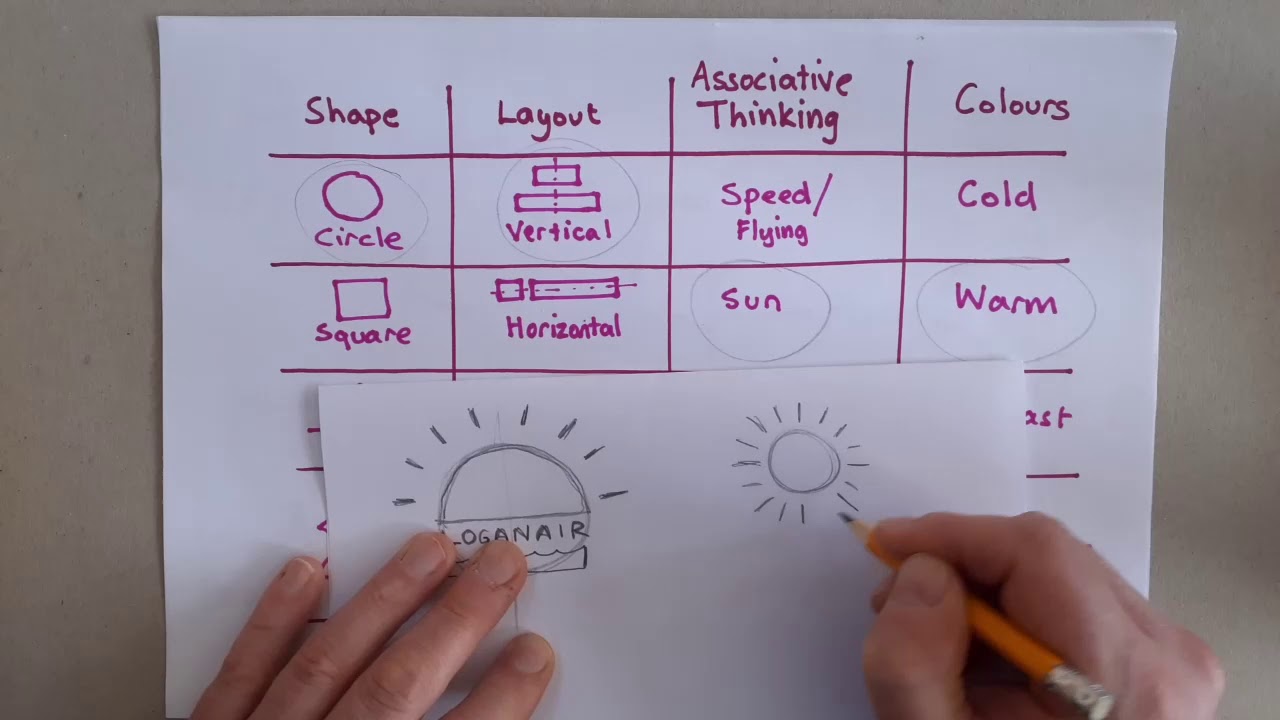 Shape Layout Associative Thinking Colours
Circle Vertical Speed/ Flying Cold
Square Horizontal Sun Warm
LOGANAIR